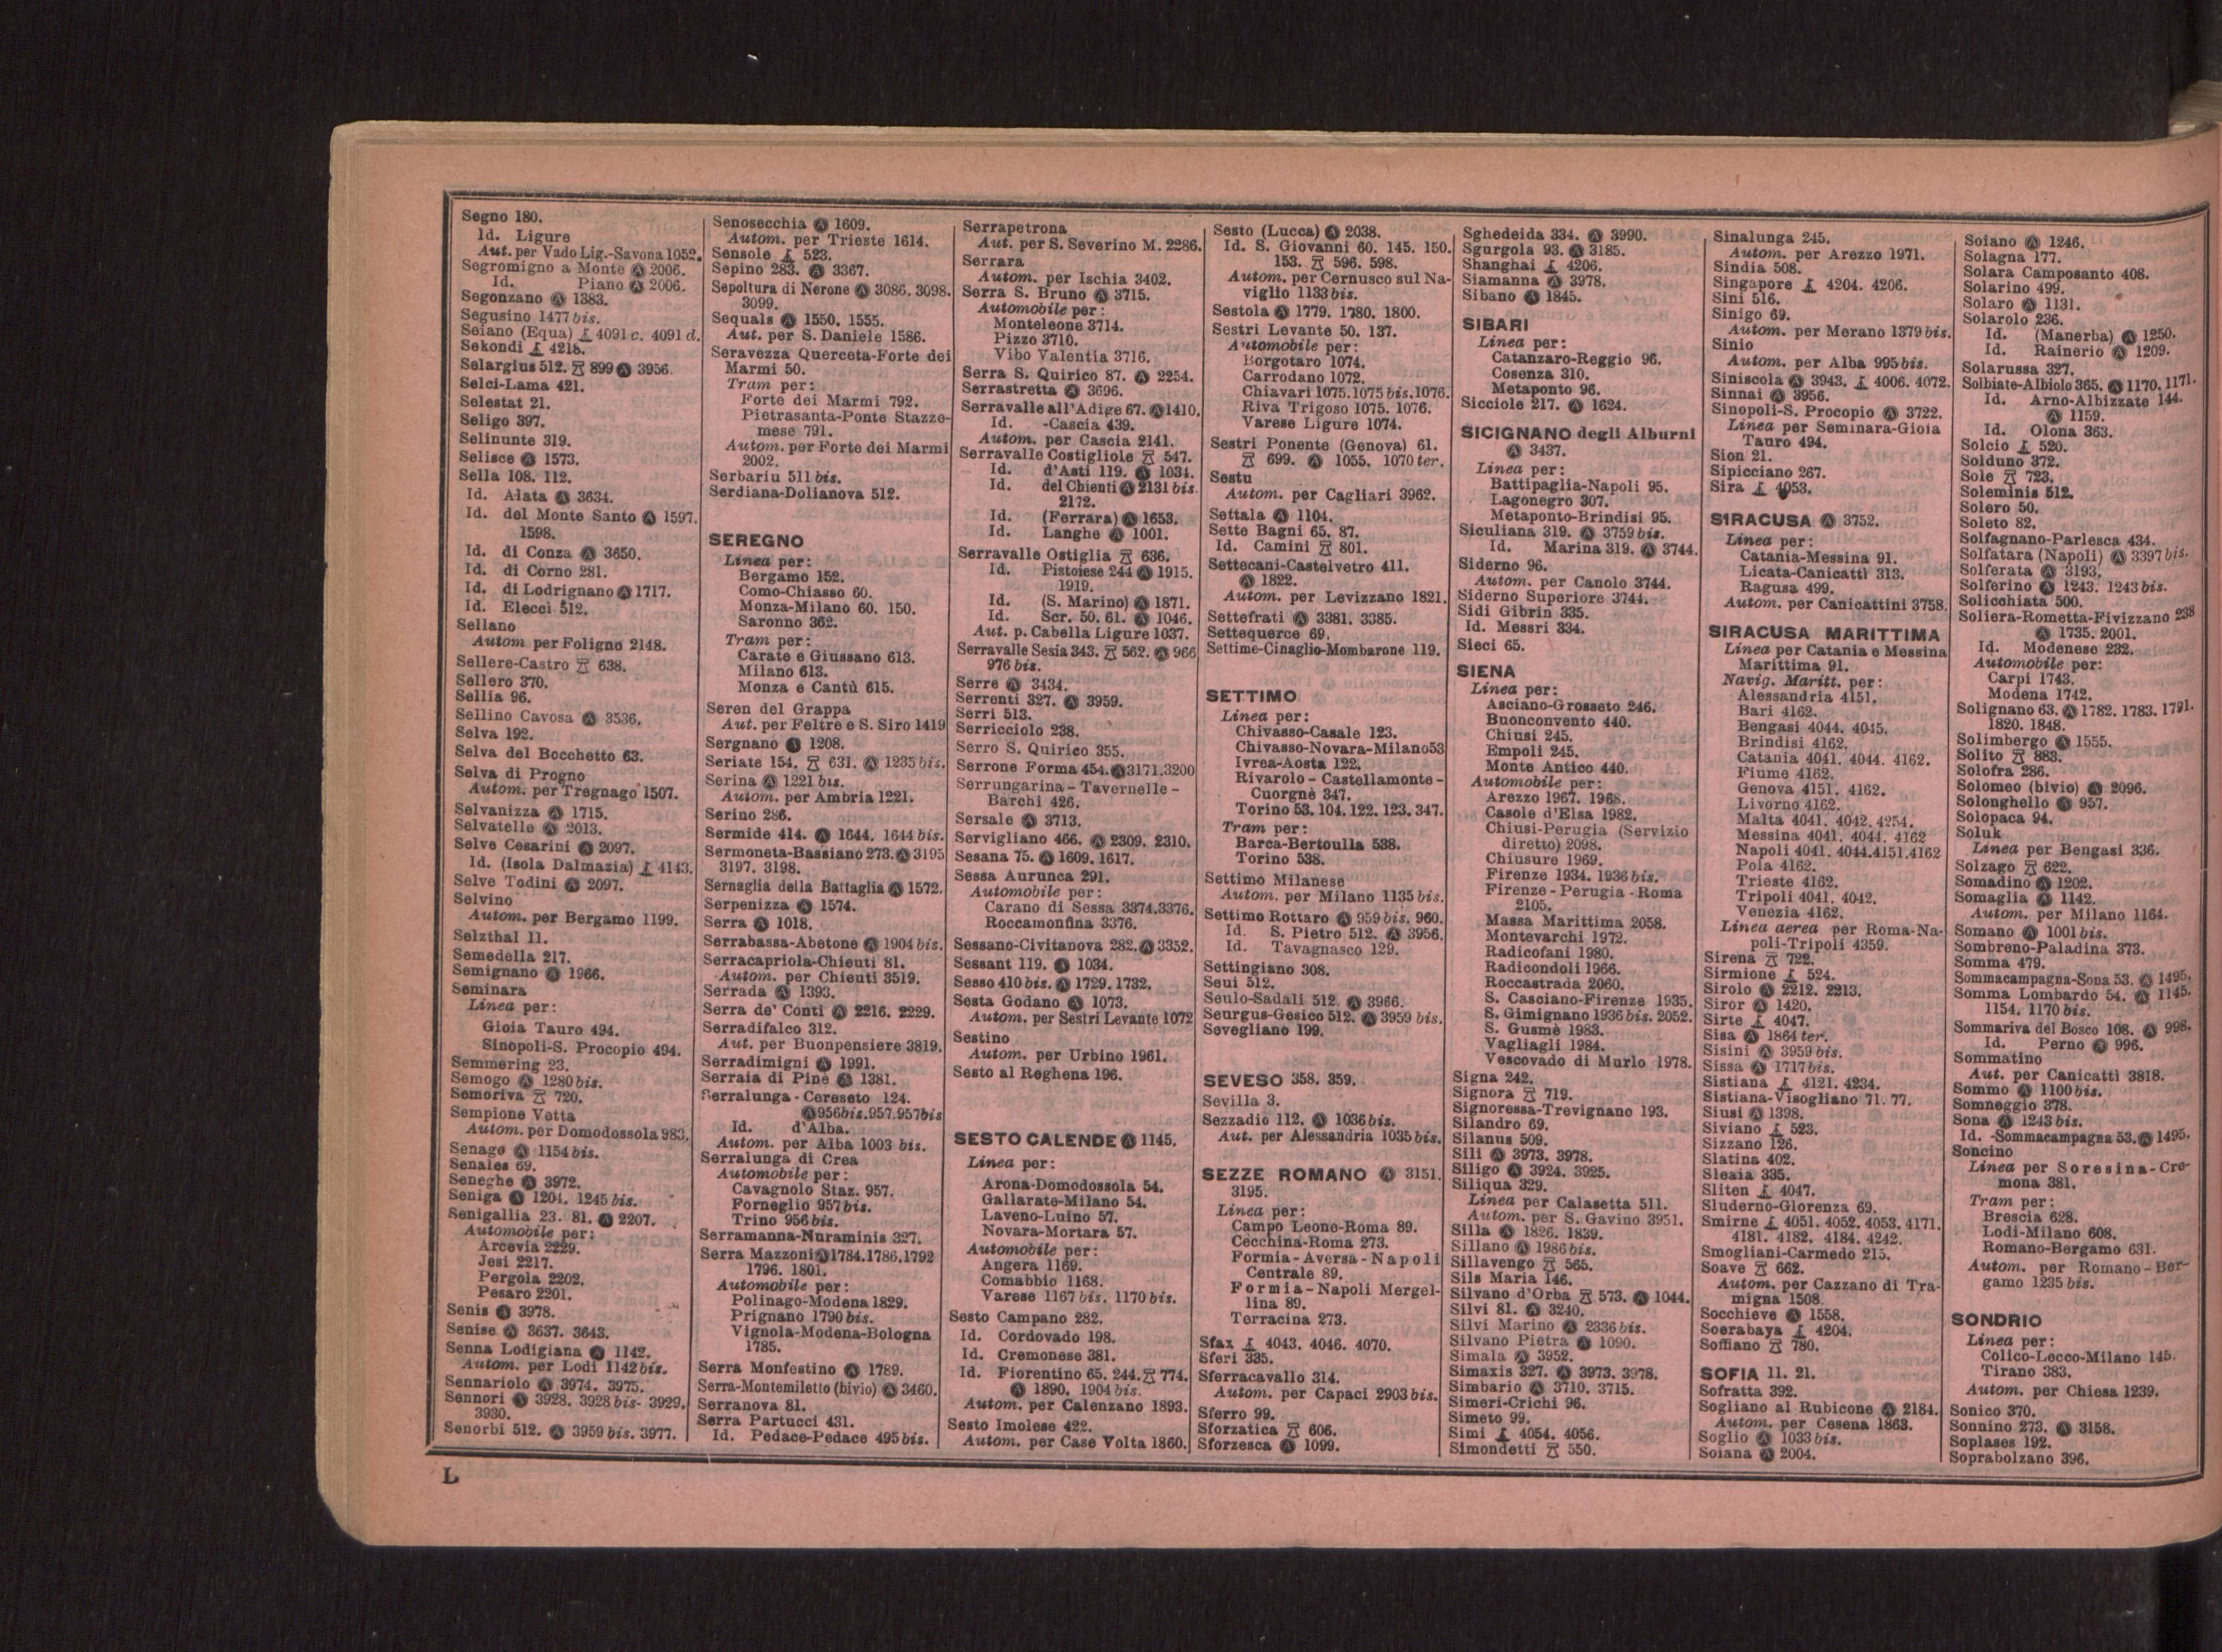 Segno 180.
Id. Ligure
Aut. per Vado Lig.-Savona 1052.
Segromigno a Monte Ⓐ 2006.
Id. Piano Ⓐ 2006.
Segonzano Ⓐ 1383.
Segusino 1477 bis.
Seiano (Equa) 4091 c. 4091 d.
Sekondi 4218.
Selargius 512. 899 Ⓐ 3956.
Selci-Lama 421.
Selestat 21.
Seligo 397.
Selinunte 319.
Selisce Ⓐ 1573.
Sella 108. 112.
Id. Alata Ⓐ 3634.
Id. del Monte Santo Ⓐ 1597.
1598.
Id. di Conza Ⓐ 3650.
Id. di Corno 281.
Id. di Lodrignano Ⓐ 1717.
Id. Elecci 512.
Sellano
Autom per Foligno 2148.
Sellere-Castro 638.
Sellero 370.
Sellia 96.
Sellino Cavosa Ⓐ 3536.
Selva 192.
Selva del Bocchetto 63.
Selva di Progno
Autom. per Tregnago 1507.
Selvanizza Ⓐ 1715.
Selvatelle Ⓐ 2013.
Selve Cesarini Ⓐ 2097.
Id. (Isola Dalmazia) 4143.
Selve Todini Ⓐ 2097.
Selvino
Autom. per Bergamo 1199.
Selzthal 11.
Semedella 217.
Semignano Ⓐ 1966.
Seminara
Linea per:
Gioia Tauro 494.
Sinopoli-S. Procopio 494.
Semmering 23.
Semogo Ⓐ 1280 bis.
Semoriva 720.
Sempione Vetta
Autom. per Domodossola 983.
Senago Ⓐ 1154 bis.
Senales 69.
Seneghe Ⓐ 3972.
Seniga Ⓐ 1204. 1245 bis.
Senigallia 23. 81. Ⓐ 2207.
Automobile per:
Arcevia 2229.
Jesi 2217.
Pergola 2202.
Pesaro 2201.
Senis Ⓐ 3978.
Senise Ⓐ 3637. 3643.
Senna Lodigiana Ⓐ 1142.
Autom. per Lodi 1142 bis.
Sennariolo Ⓐ 3974. 3975.
Sennori Ⓐ 3928. 3928 bis- 3929.
3930.
Senorbì 512. Ⓐ 3959 bis. 3977.
Senosecchia Ⓐ 1609.
Autom. per Trieste 1614.
Sensole 523.
Sepino 283. Ⓐ 3367.
Sepoltura di Nerone Ⓐ 3086. 3098.
3099.
Sequals Ⓐ 1550. 1555.
Aut. per S. Daniele 1586.
Seravezza Querceta-Forte dei
Marmi 50.
Tram per:
Forte dei Marmi 792.
Pietrasanta-Ponte Stazze-
mese 791.
Autom. per Forte dei Marmi
2002.
Serbariu 511 bis.
Serdiana-Dolianova 512.
SEREGNO
Linea per:
Bergamo 152.
Como-Chiasso 60.
Monza-Milano 60. 150.
Saronno 362.
Tram per:
Carate e Giussano 613.
Milano 613.
Monza e Cantù 615.
Seren del Grappa
Aut. per Feltre e S. Siro 1419
Sergnano Ⓐ 1208.
Seriate 154. 631. Ⓐ 1235 bis.
Serina Ⓐ 1221 bis.
Autom. per Ambria 1221.
Serino 286.
Sermide 414. Ⓐ 1644. 1644 bis.
Sermoneta-Bassiano 273. Ⓐ 3195
3197. 3198.
Sernaglia della Battaglia Ⓐ 1572.
Serpenizza Ⓐ 1574.
Serra Ⓐ 1018.
Serrabassa-Abetone Ⓐ 1904 bis.
Serracapriola-Chieuti 81.
Autom. per Chieuti 3519.
Serrada Ⓐ 1393.
Serra de' Conti Ⓐ 2216. 2229.
Serradifalco 312.
Aut. per Buonpensiere 3819.
Serradimigni Ⓐ 1991.
Serraia di Pinè Ⓐ 1381.
Serralunga-Cereseto 124.
Ⓐ 956 bis. 957. 957 bis
Id. d'Alba.
Autom. per Alba 1003 bis.
Serralunga di Crea
Automobile per:
Cavagnolo Staz. 957.
Forneglio 957 bis.
Trino 956 bis.
Serramanna-Nuraminis 327.
Serra Mazzoni Ⓐ 1784. 1786. 1792
1796. 1801.
Automobile per:
Polinago-Modena 1829.
Prignano 1790 bis.
Vignola-Modena-Bologna
1785.
Serra Monfestino Ⓐ 1789.
Serra-Montemiletto (bivio) Ⓐ 3460.
Serranova 81.
Serra Partucci 431.
Id. Pedace-Pedace 495 bis.
Serrapetrona
Aut. per S. Severino M. 2286.
Serrara
Autom. per Ischia 3402.
Serra S. Bruno Ⓐ 3715.
Automobile per:
Monteleone 3714.
Pizzo 3710.
Vibo Valentia 3716.
Serra S. Quirico 87. Ⓐ 2254.
Serrastretta Ⓐ 3696.
Serravalle all'Adige 67. Ⓐ 1410.
Id. -Cascia 439.
Autom. per Cascia 2141.
Serravalle Costigliole 547.
Id. d'Asti 119. Ⓐ 1034.
Id. del Chienti Ⓐ 2131 bis
2172.
Id. (Ferrara) Ⓐ 1653.
Id. Langhe Ⓐ 1001.
Serravalle Ostiglia 636.
Id. Pistoiese 244 Ⓐ 1915.
1919.
Id. (S. Marino) Ⓐ 1871.
Id. Scr. 50. 61. Ⓐ 1046.
Aut. p. Cabella Ligure 1037.
Serravalle Sesia 343. 562. Ⓐ 966
976 bis.
Serre Ⓐ 3434.
Serrenti 327. Ⓐ 3959.
Serri 513.
Serricciolo 238.
Serro S. Quirico 355.
Serrone Forma 454. Ⓐ 3171. 3200
Serrungarina-Tavernelle-
Barchi 426.
Sersale Ⓐ 3713.
Servigliano 466. Ⓐ 2309. 2310.
Sesana 75. Ⓐ 1609. 1617.
Sessa Aurunca 291.
Automobile per:
Carano di Sessa 3374. 3376.
Roccamonfina 3376.
Sessano-Civitanova 282. Ⓐ 3352.
Sessant 119. Ⓐ 1034.
Sesso 410 bis. Ⓐ 1729. 1732.
Sesta Godano Ⓐ 1073.
Autom. per Sestri Levante 1072
Sestino
Autom. per Urbino 1961.
Sesto al Reghena 196.
SESTO CALENDE Ⓐ 1145.
Linea per:
Arona-Domodossola 54.
Gallarate-Milano 54.
Laveno-Luino 57.
Novara-Mortara 57.
Automobile per:
Angera 1169.
Comabbio 1168.
Varese 1167 bis. 1170 bis.
Sesto Campano 282.
Id. Cordovado 198.
Id. Cremonese 381.
Id. Fiorentino 65. 244. 774.
Ⓐ 1890. 1904 bis.
Autom. per Calenzano 1893.
Sesto Imolese 422.
Autom. per Case Volta 1860.
Sesto (Lucca) Ⓐ 2038.
Id. S. Giovanni 60. 145. 150.
153. 596. 598.
Autom. per Cernusco sul Na-
viglio 1133 bis.
Sestola Ⓐ 1779. 1780. 1800.
Sestri Levante 50. 137.
Automobile per:
Borgotaro 1074.
Carrodano 1072.
Chiavari 1075. 1075 bis. 1076.
Riva Trigoso 1075. 1076.
Varese Ligure 1074.
Sestri Ponente (Genova) 61.
699. Ⓐ 1055. 1070 ter.
Sestu
Autom. per Cagliari 3962.
Settala Ⓐ 1104.
Sette Bagni 65. 87.
Id. Camini 801.
Settecani-Castelvetro 411.
Ⓐ 1822.
Autom. per Levizzano 1821.
Settefrati Ⓐ 3381. 3385.
Settequerce 69.
Settime-Cinaglio-Mombarone 119.
SETTIMO
Linea per:
Chivasso-Casale 123.
Chivasso-Novara-Milano 53
Ivrea-Aosta 122.
Rivarolo-Castellamonte-
Cuorgnè 347.
Torino 53. 104. 122. 123. 347.
Tram per:
Barca-Bertoulla 538.
Torino 538.
Settimo Milanese
Autom. per Milano 1135 bis.
Settimo Rottaro Ⓐ 959 bis. 960.
Id. S. Pietro 512. Ⓐ 3956.
Id. Tavagnasco 129.
Settingiano 308.
Seui 512.
Seulo-Sadali 512. Ⓐ 3966.
Seurgus-Gesico 512. Ⓐ 3959 bis.
Sevegliano 199.
SEVESO 358. 359.
Sevilla 3.
Sezzadio 112. Ⓐ 1036 bis.
Aut. per Alessandria 1035 bis.
SEZZE ROMANO Ⓐ 3151.
3195.
Linea per:
Campo Leone-Roma 89.
Cecchina-Roma 273.
Formia-Aversa-Napoli
Centrale 89.
Formia-Napoli Mergel-
lina 89.
Terracina 273.
Sfax 4043. 4046. 4070.
Sferi 335.
Sferracavallo 314.
Autom. per Capaci 2903 bis.
Sferro 99.
Sforzatica 606.
Sforzesca Ⓐ 1099.
Sghedeida 334. Ⓐ 3990.
Sgurgola 93. Ⓐ 3185.
Shanghai 4206.
Siamanna Ⓐ 3978.
Sibano Ⓐ 1845.
SIBARI
Linea per:
Catanzaro-Reggio 96.
Cosenza 310.
Metaponto 96.
Sicciole 217. Ⓐ 1624.
SICIGNANO degli Alburni
Ⓐ 3437.
Linea per:
Battipaglia-Napoli 95.
Lagonegro 307.
Metaponto-Brindisi 95.
Siculiana 319. Ⓐ 3759 bis.
Id. Marina 319. Ⓐ 3744.
Siderno 96.
Autom. per Canolo 3744.
Siderno Superiore 3744.
Sidi Gibrin 335.
Id. Messri 334.
Sieci 65.
SIENA
Linea per:
Asciano-Grosseto 246.
Buonconvento 440.
Chiusi 245.
Empoli 245.
Monte Antico 440.
Automobile per:
Arezzo 1967. 1968.
Casole d'Elsa 1982.
Chiusi-Perugia (Servizio
diretto) 2098.
Chiusure 1969.
Firenze 1934. 1936 bis.
Firenze-Perugia-Roma
2105.
Massa Marittima 2058.
Montevarchi 1972.
Radicofani 1980.
Radicondoli 1966.
Roccastrada 2060.
S. Casciano-Firenze 1935.
S. Gimignano 1936 bis. 2052.
S. Gusmè 1983.
Vagliagli 1984.
Vescovado di Murlo 1978.
Signa 242.
Signora 719.
Signoressa-Trevignano 193.
Silandro 69.
Silanus 509.
Sili Ⓐ 3973. 3978.
Siligo Ⓐ 3924. 3925.
Siliqua 329.
Linea per Calasetta 511.
Autom. per S. Gavino 3951.
Silla Ⓐ 1826. 1839.
Sillano Ⓐ 1986 bis.
Sillavengo 565.
Sils Maria 146.
Silvano d'Orba 573. Ⓐ 1044.
Silvi 81. Ⓐ 3240.
Silvi Marino Ⓐ 2336 bis.
Silvano Pietra Ⓐ 1090.
Simala Ⓐ 3952.
Simaxis 327. Ⓐ 3973. 3978.
Simbario Ⓐ 3710. 3715.
Simeri-Crichi 96.
Simeto 99.
Simi 4054. 4056.
Simondetti 550.
Sinalunga 245.
Autom. per Arezzo 1971.
Sindia 508.
Singapore 4204. 4206.
Sini 516.
Sinigo 69.
Autom. per Merano 1379 bis.
Sinio
Autom. per Alba 995 bis.
Siniscola Ⓐ 3943. 4006. 4072.
Sinnai Ⓐ 3956.
Sinopoli-S. Procopio Ⓐ 3722.
Linea per Seminara-Gioia
Tauro 494.
Sion 21.
Sipicciano 267.
Sira 4053.
SIRACUSA Ⓐ 3752.
Linea per:
Catania-Messina 91.
Licata-Canicattì 313.
Ragusa 499.
Autom. per Canicattini 3758.
SIRACUSA MARITTIMA
Linea per Catania e Messina
Marittima 91.
Navig. Maritt. per:
Alessandria 4151.
Bari 4162.
Bengasi 4044. 4045.
Brindisi 4162.
Catania 4041. 4044. 4162.
Fiume 4162.
Genova 4151. 4162.
Livorno 4162.
Malta 4041. 4042. 4254.
Messina 4041. 4044. 4162
Napoli 4041. 4044. 4151. 4162
Pola 4162.
Trieste 4162.
Tripoli 4041. 4042.
Venezia 4162.
Linea aerea per Roma-Na-
poli-Tripoli 4359.
Sirena 722.
Sirmione 524.
Sirolo Ⓐ 2212. 2213.
Siror Ⓐ 1420.
Sirte 4047.
Sisa Ⓐ 1864 ter.
Sisini Ⓐ 3959 bis.
Sissa Ⓐ 1717 bis.
Sistiana 4121. 4234.
Sistiana-Visogliano 71. 77.
Siusi Ⓐ 1398.
Siviano 523.
Sizzano 126.
Slatina 402.
Sleaia 335.
Sliten 4047.
Sluderno-Glorenza 69.
Smirne 4051. 4052. 4053. 4171.
4181. 4182. 4184. 4242.
Smogliani-Carmedo 215.
Soave 662.
Autom. per Cazzano di Tra-
migna 1508.
Socchieve Ⓐ 1558.
Soerabaya 4204.
Soffiano 780.
SOFIA 11. 21.
Sofratta 392.
Sogliano al Rubicone Ⓐ 2184.
Autom. per Cesena 1863.
Soglio Ⓐ 1033 bis.
Soiana Ⓐ 2004.
Soiano Ⓐ 1246.
Solagna 177.
Solara Camposanto 408.
Solarino 499.
Solaro Ⓐ 1131.
Solarolo 236.
Id. (Manerba) Ⓐ 1250.
Id. Rainerio Ⓐ 1209.
Solarussa 327.
Solbiate-Albiolo 365. Ⓐ 1170. 1171.
Id. Arno-Albizzate 144.
Ⓐ 1159.
Id. Olona 363.
Solcio 520.
Solduno 372.
Sole 723.
Soleminis 512.
Solero 50.
Soleto 82.
Solfagnano-Parlesca 434.
Solfatara (Napoli) Ⓐ 3397 bis.
Solferata Ⓐ 3193.
Solferino Ⓐ 1243. 1243 bis.
Solicchiata 500.
Soliera-Rometta-Fivizzano 238
Ⓐ 1735. 2001.
Id. Modenese 232.
Automobile per:
Carpi 1743.
Modena 1742.
Solignano 63. Ⓐ 1782. 1783. 1791.
1820. 1848.
Solimbergo Ⓐ 1555.
Solito 883.
Solofra 286.
Solomeo (bivio) Ⓐ 2096.
Solonghello Ⓐ 957.
Solopaca 94.
Soluk
Linea per Bengasi 336.
Solzago 622.
Somadino Ⓐ 1202.
Somaglia Ⓐ 1142.
Autom. per Milano 1164.
Somano Ⓐ 1001 bis.
Sombreno-Paladina 373.
Somma 479.
Sommacampagna-Sona 53. Ⓐ 1495.
Somma Lombardo 54. Ⓐ 1145.
1154. 1170 bis.
Sommariva del Bosco 108. Ⓐ 998.
Id. Perno Ⓐ 996.
Sommatino
Aut. per Canicattì 3818.
Sommo Ⓐ 1100 bis.
Somneggio 378.
Sona Ⓐ 1243 bis.
Id. -Sommacampagna 53. Ⓐ 1495.
Soncino
Linea per Soresina-Cre-
mona 381.
Tram per:
Brescia 628.
Lodi-Milano 608.
Romano-Bergamo 631.
Autom. per Romano-Ber-
gamo 1235 bis.
SONDRIO
Linea per:
Colico-Lecco-Milano 145.
Tirano 383.
Autom. per Chiesa 1239.
Sonico 370.
Sonnino 273. Ⓐ 3158.
Soplases 192.
Soprabolzano 396.
L